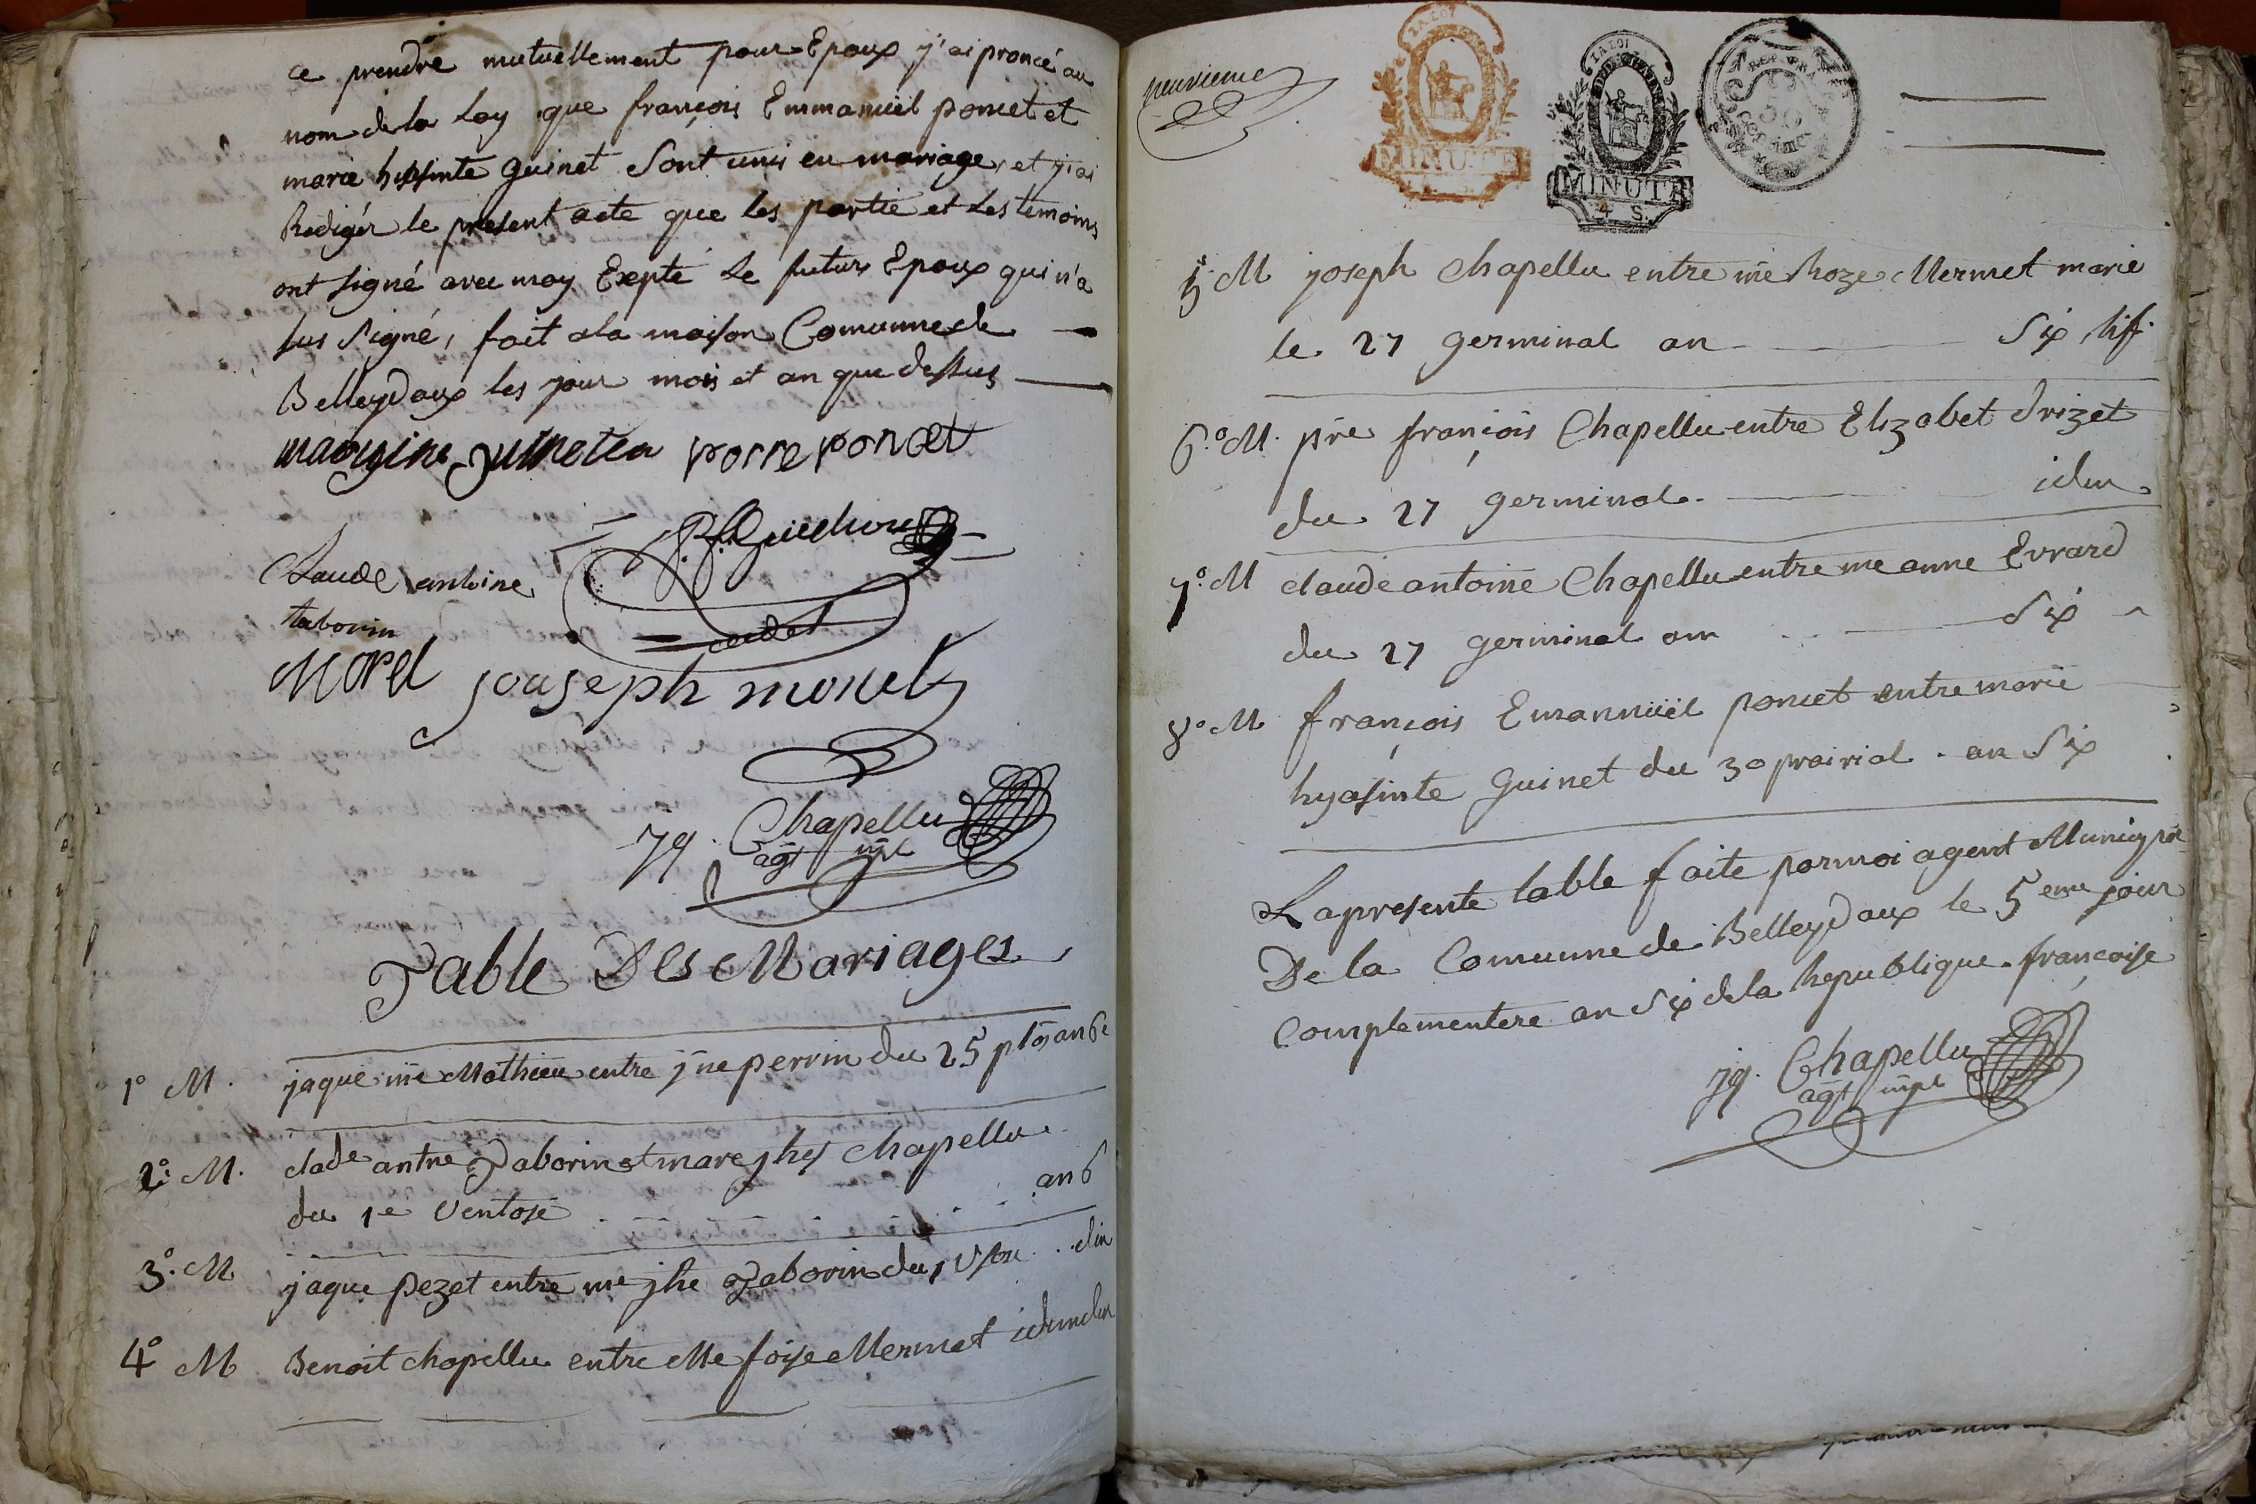 ce prendre mutuellement pour Epoux j'ai proncé au
nom de la Loy que françois Emmanuel poncet et
marie hissinte guinet Sont unis en mariage, et j'ai
Redigér le present acte que les partie et Les temoins
ont signé avec moy Exepté Le futurs Epoux qui n'a
sus Signé, fait a la maison Comunne de
Belleydoux les jour mois et an que dessus
porre poncet
Claude antoine
taborin
Morel
jouseph monet
Jq. Chapellu
agt mpl
Table Des Mariages
1º M. jaque Mathieu entre jne perrin du 25 plos an 6e
2º. M. clade antne Taborin et mare jhes chapellu
du 1e Ventose an 6
3º. M jaque pezet entre me jhe Taborin du 1
4º M Benoit chapellu entre Me foise Mermet idem
neuvieme
LA LOI
MINUTE
LA LOI
MINUTE
4 S.
REP. FRA.
50
CENTIMES
5. M joseph Chapellu entre me Roze Mermet marie
le 27 germinal an Six
6º. M. pre françois Chapellu entre Elizabet Drizet
du 27 germinal idem
7º. M claude antoine Chapellu entre me anne Evrard
du 27 germinal an Six
8º M françois Emannuël poncet entre marie
hyasinte guinet du 30 prairial an Six
La presente table faite par moi agent Municipal
De la Comunne de Belleydoux le 5eme jour
Complementere an Six de la Republique françoise
Jq. Chapellu
agt mpl